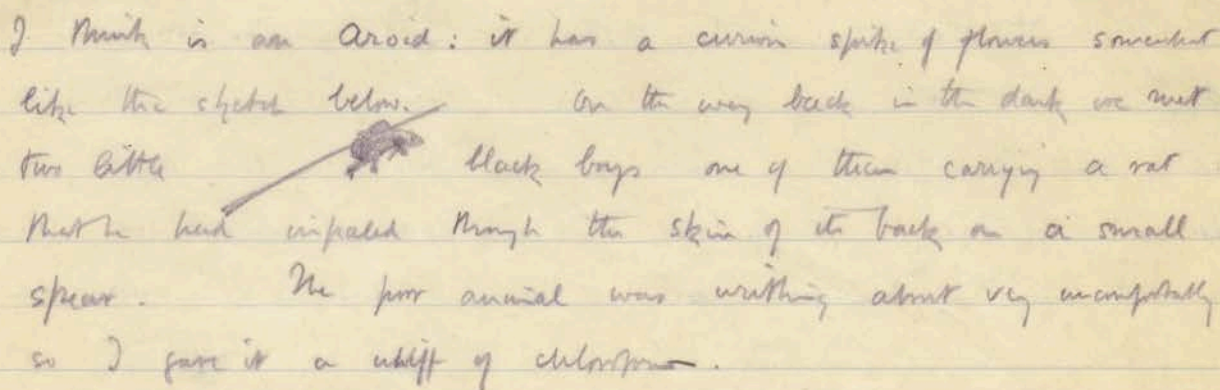 I think is an Aroid: it has a curious spike of flowers somewhat
like the sketch below. On the way back in the dark we met
two little black boys one of them carrying a rat
that he had impaled through the skin of its back on a small
spear. The poor animal was writhing about very uncomfortably
so I gave it a whiff of chloroform.